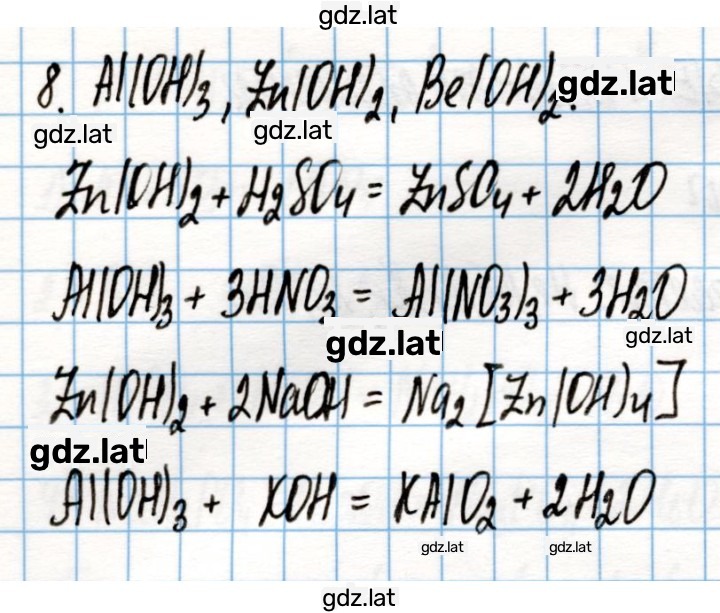 gdz.lat
8. Al(OH)3, Zn(OH)2, Be(OH)2. gdz.lat
gdz.lat gdz.lat
Zn(OH)2 + H2SO4 = ZnSO4 + 2H2O
Al(OH)3 + 3HNO3 = Al(NO3)3 + 3H2O
gdz.lat gdz.lat
Zn(OH)2 + 2NaOH = Na2[Zn(OH)4]
gdz.lat
Al(OH)3 + KOH = KAlO2 + 2H2O
gdz.lat gdz.lat
gdz.lat